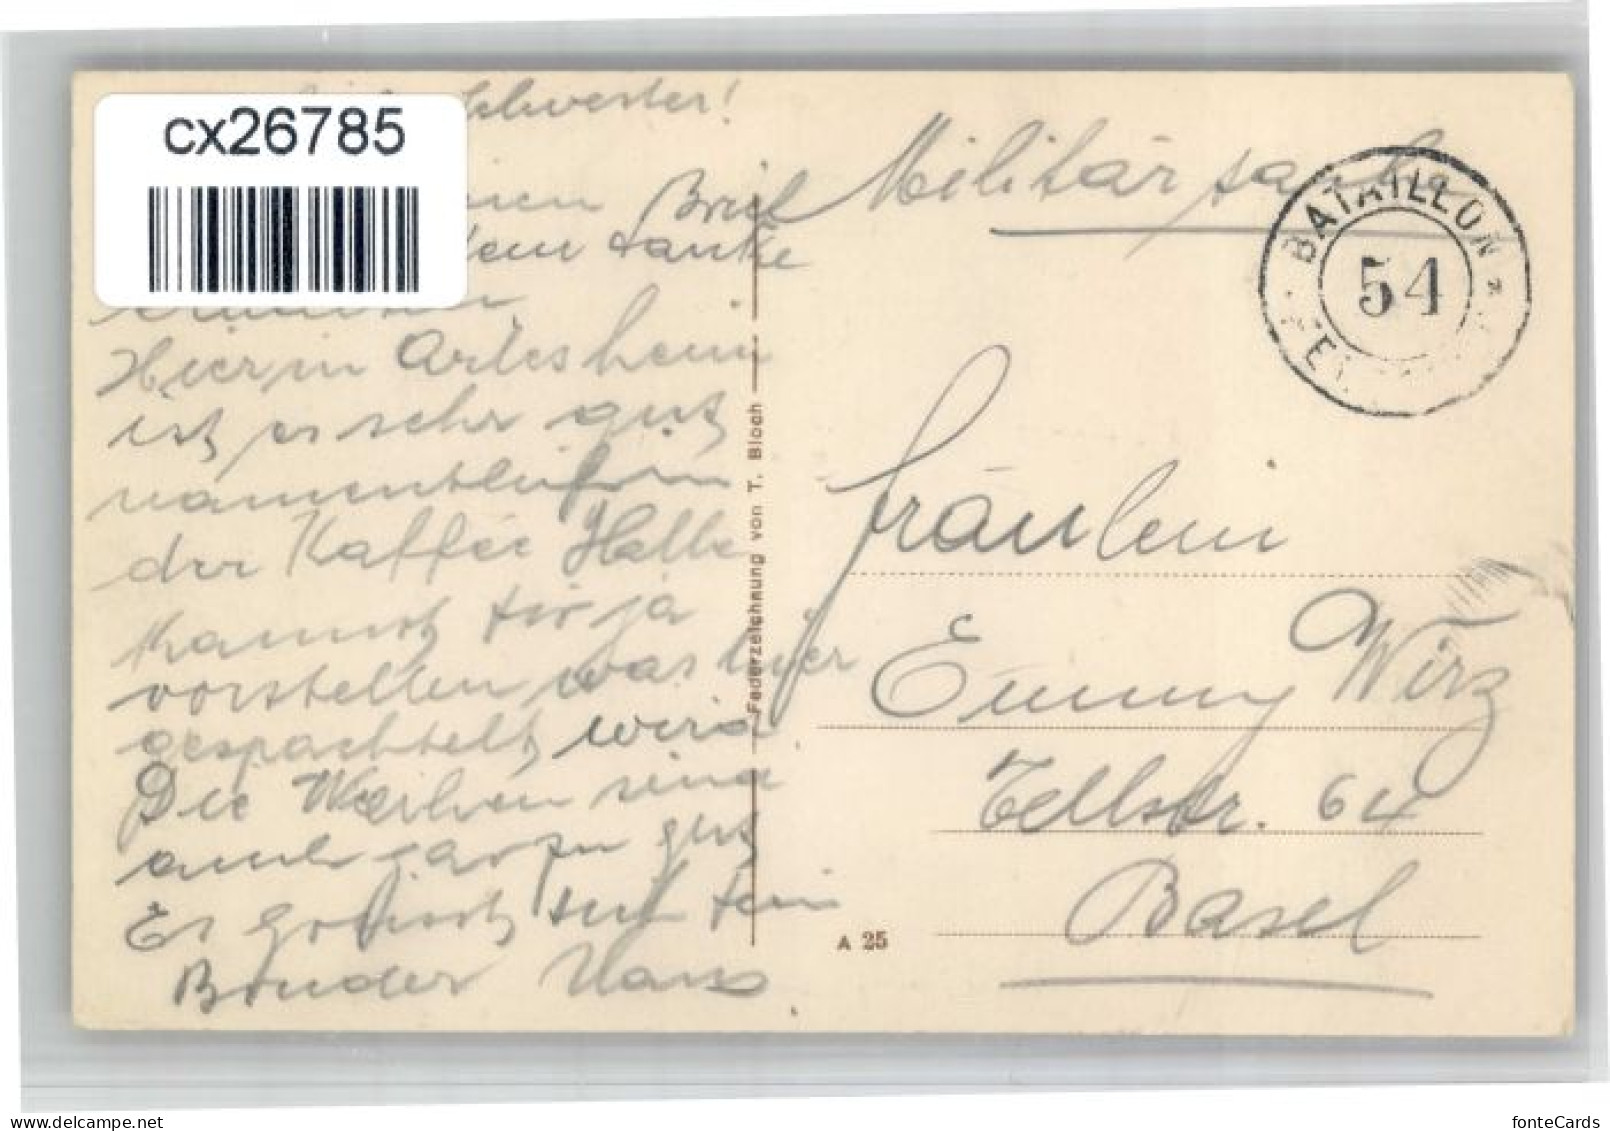 cx26785
Schwester!
Brief
danke
Hier in Arlesheim
ist es sehr gut
namentlich in
der Kaffee Halle
kannst dir ja
vorstellen was hier
gespachtelt wird
Die Weiben sind
auch ganz gut
Es grüsst dich dein
Bruder Hans
Federzeichnung von T. Bloch
A 25
Militär sache
BATAILLON
54
Fräulein
Emmy Wirz
Tellstr. 64
Basel
delcampe.net
fonteCards